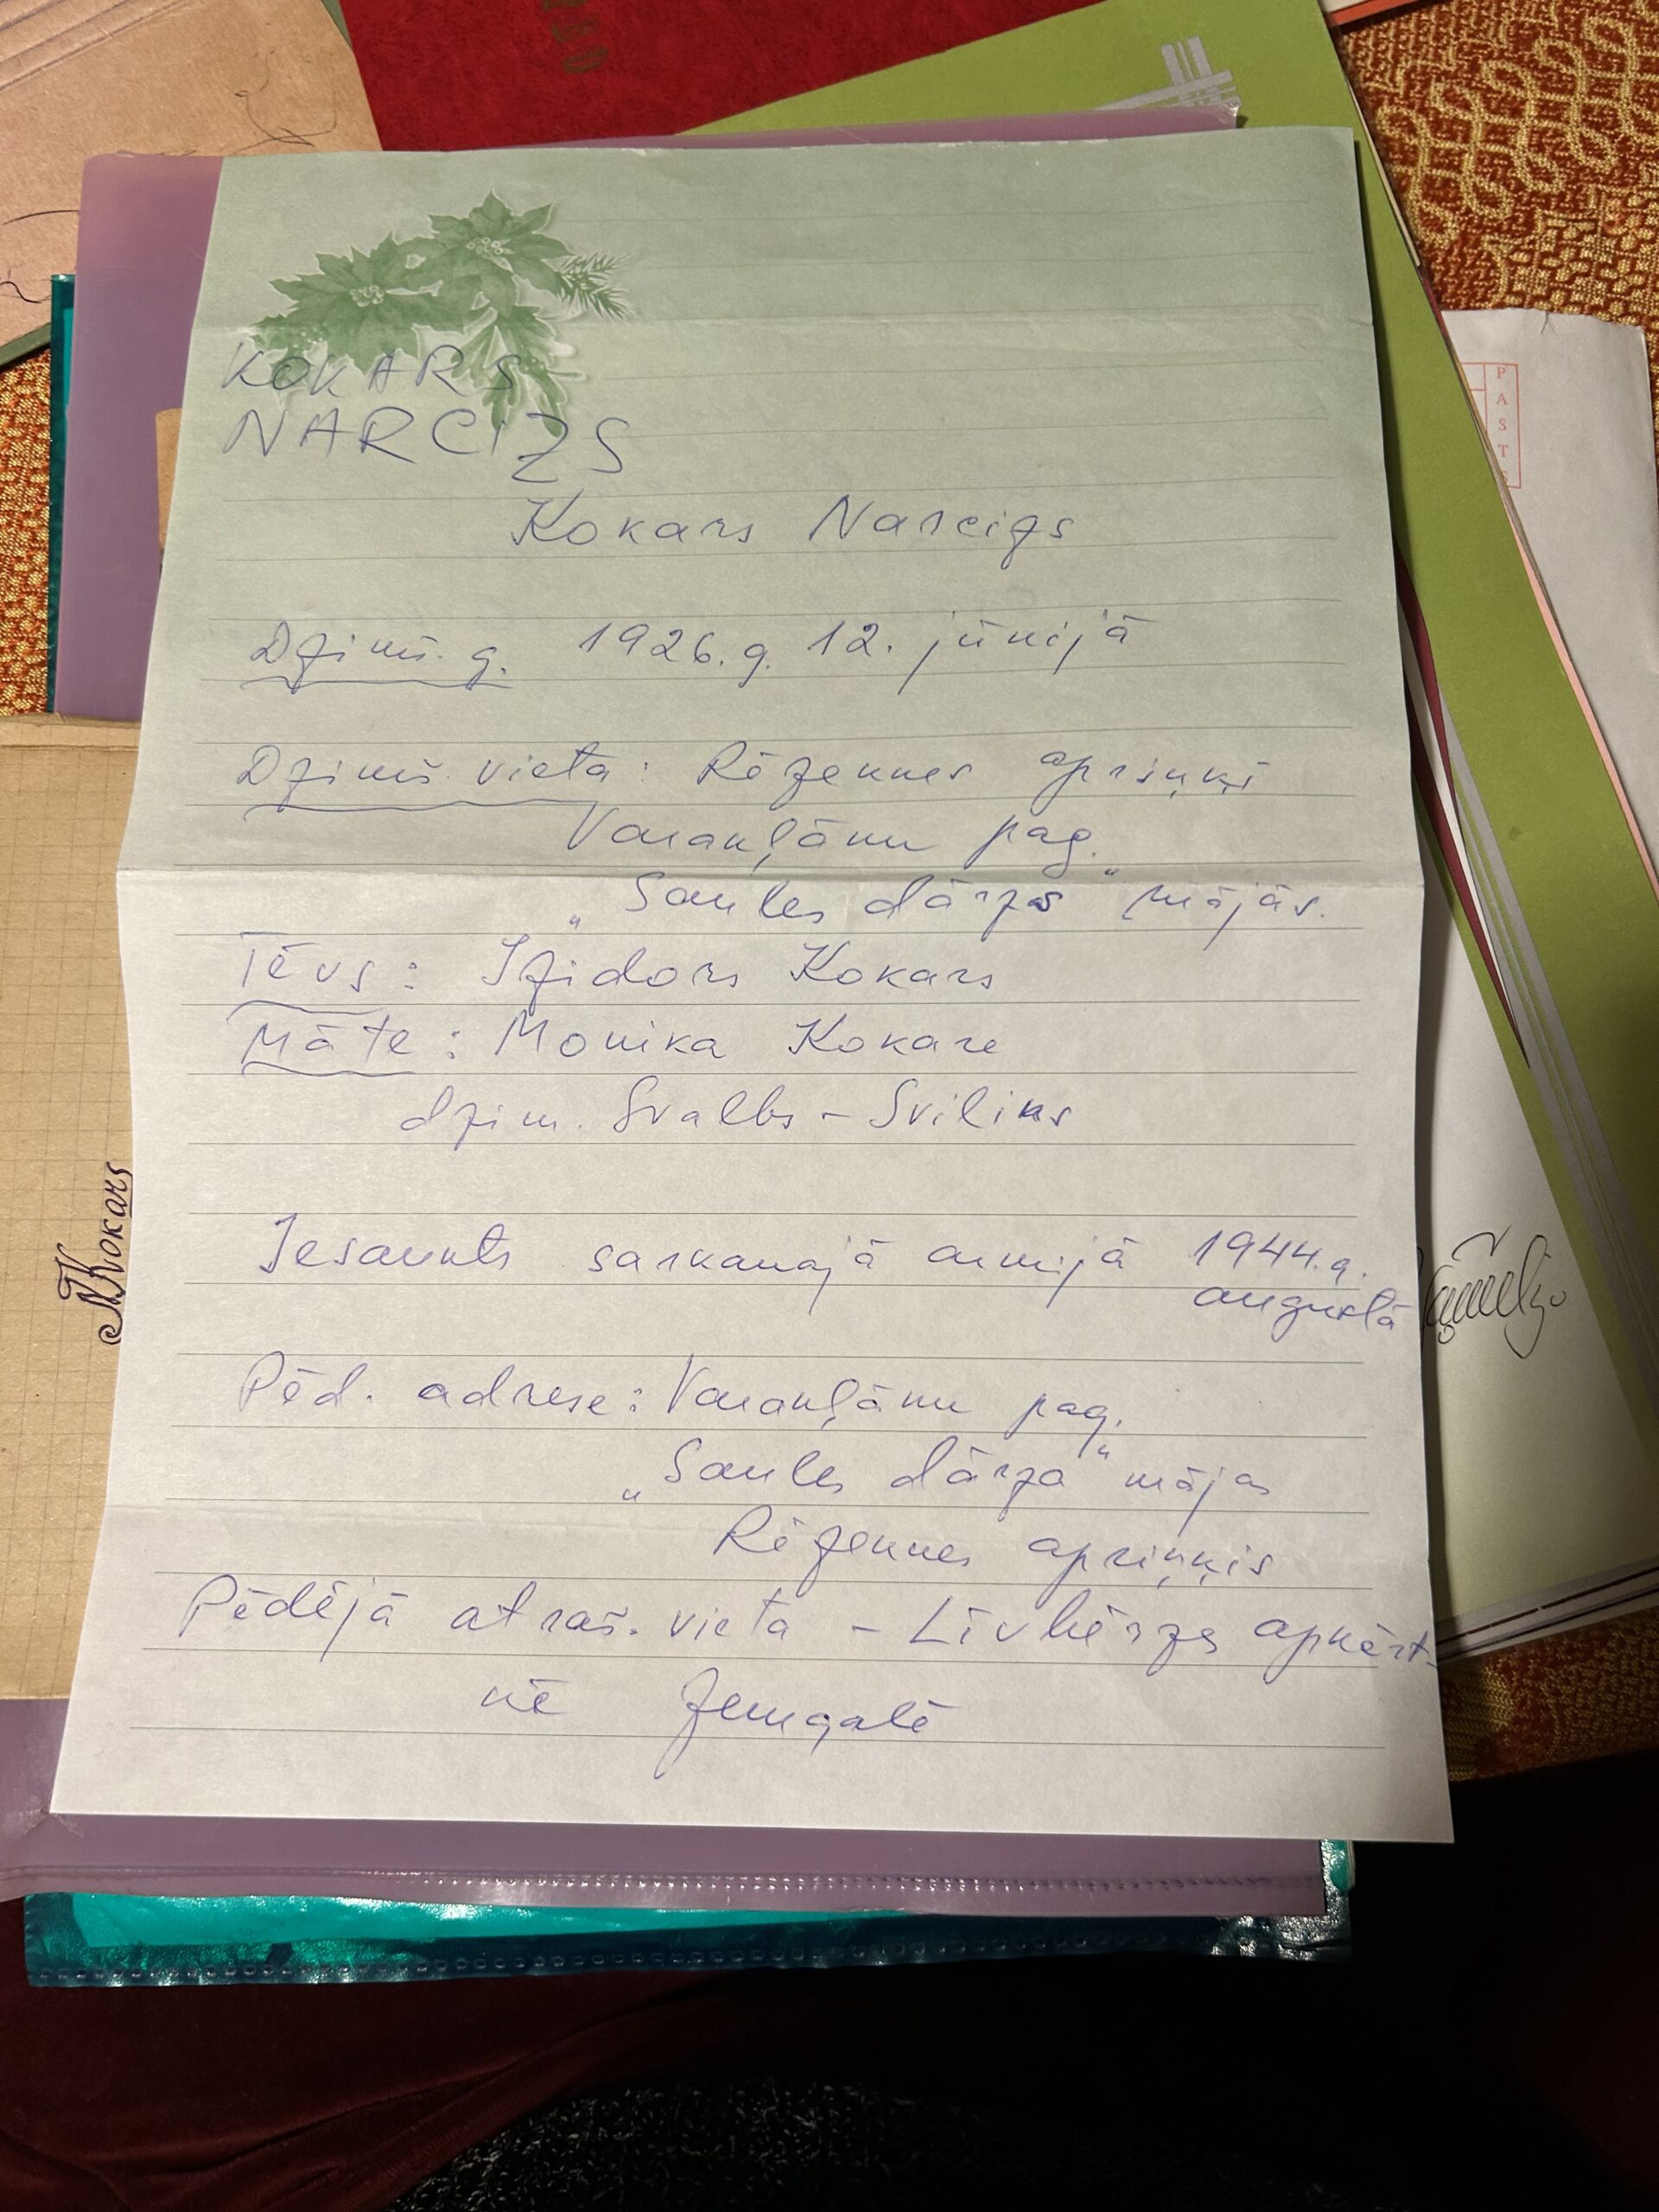 KOKARS
NARCIZS
Kokars Narcizs
Dzimš. g. 1926. g. 12. jūnijā
Dzimš. vieta: Rēzennes apriņķī
Varakļānu pag.
„Saules dārzs" mājās.
Tēvs: Izidors Kokars
Māte: Monika Kokare
dzim. Svalbs – Sviliks
Iesaukts sarkanajā armijā 1944. g.
augustā
Pēd. adrese: Varakļānu pag.
„Saules dārza" mājas
Rēzennes apriņķis
Pēdējā atraš. vieta – Līvbērzes apkārt-
nē Zemgalē
N. Kokars
PASTS